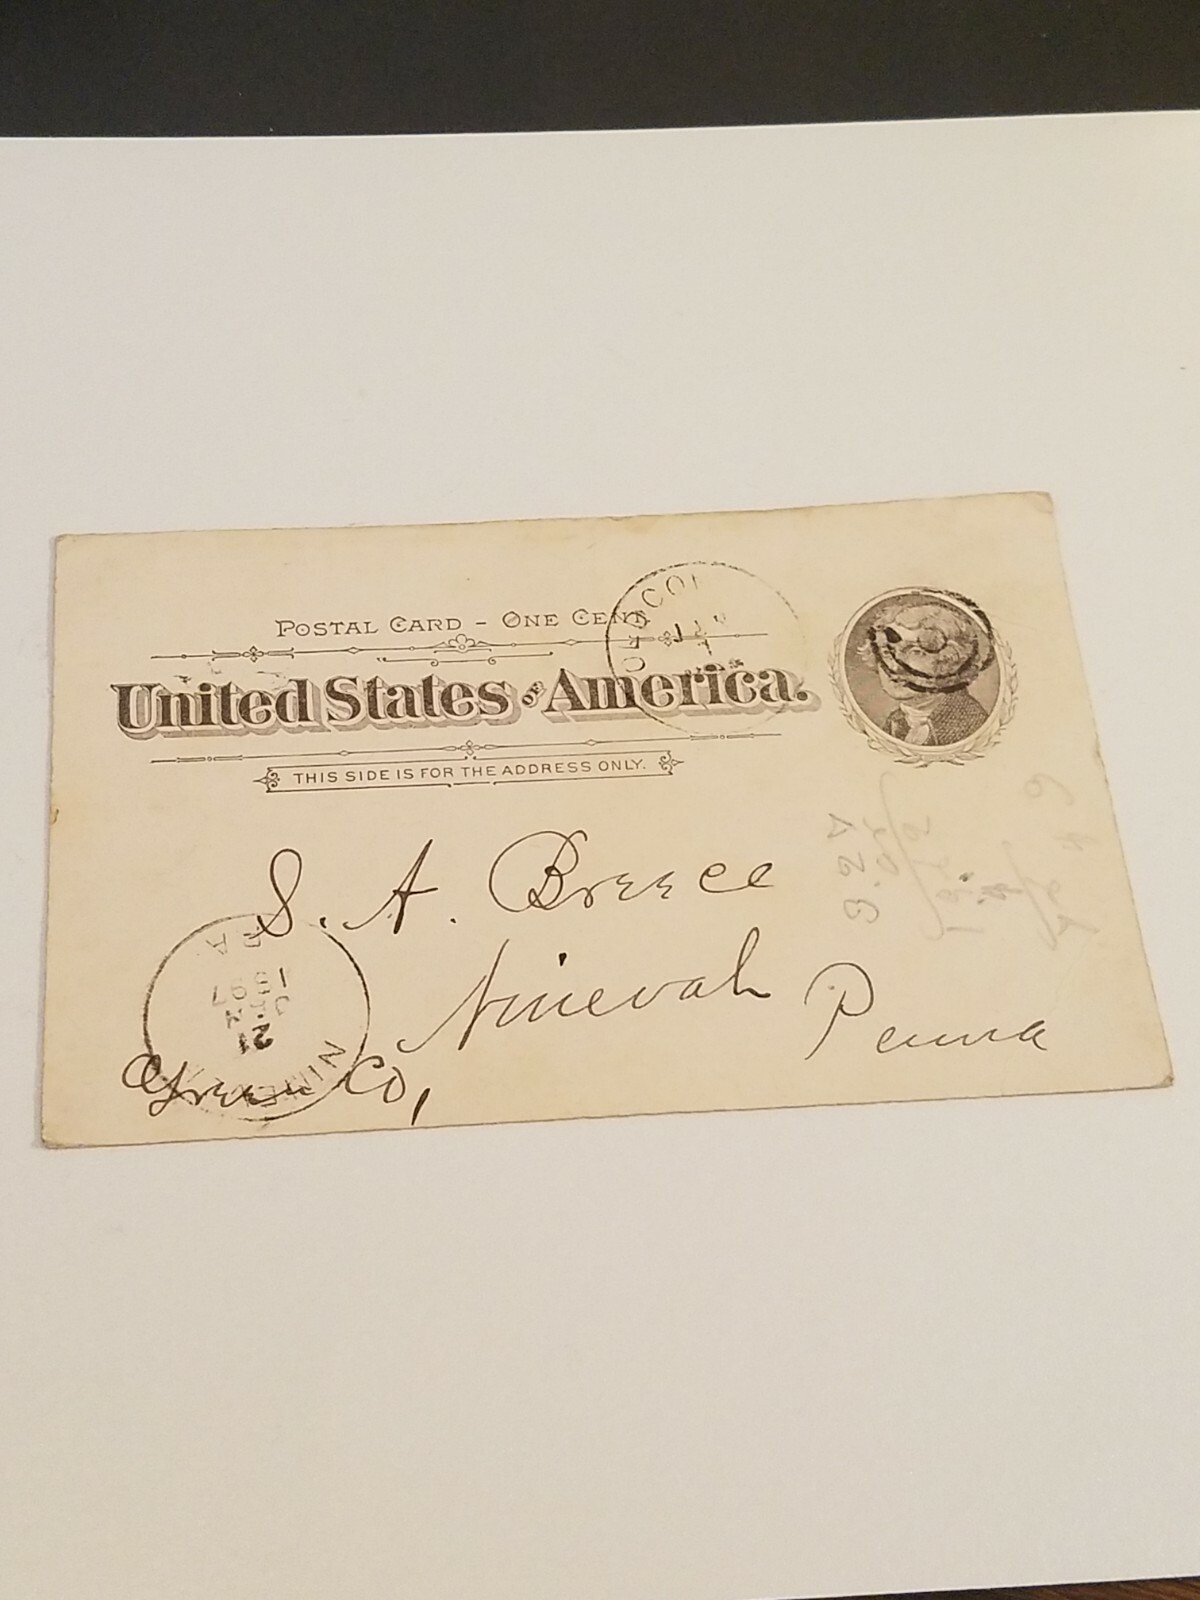 POSTAL CARD - ONE CENT
United States OF America.
THIS SIDE IS FOR THE ADDRESS ONLY.
S. A. Breece
Ninevah Penna
Green Co,
PA.
1897
JAN
21
3.27